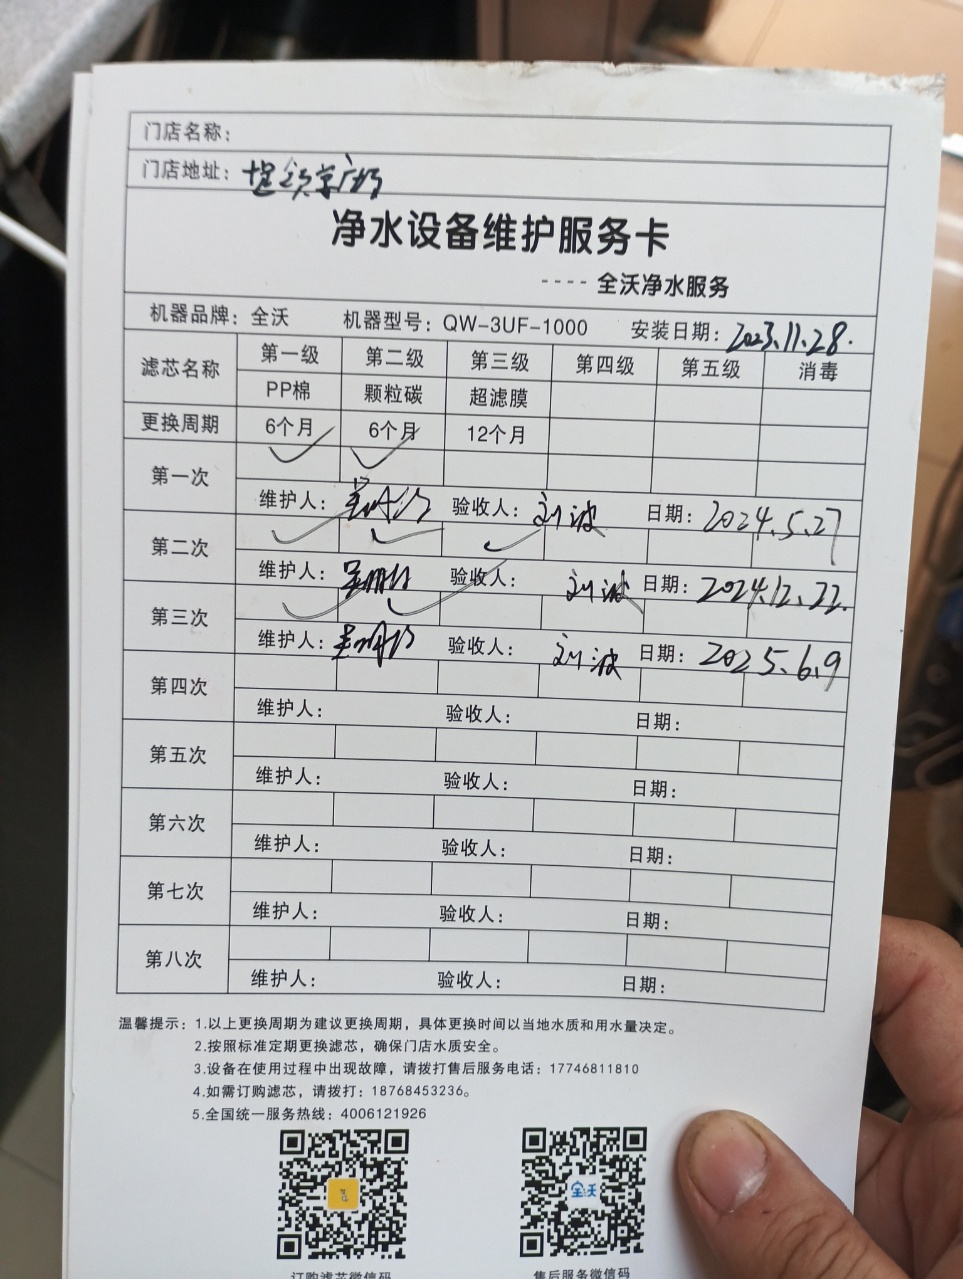 门店名称：
门店地址：
净水设备维护服务卡
---- 全沃净水服务
机器品牌：全沃 机器型号：QW-3UF-1000 安装日期：2023.11.28.
滤芯名称 第一级 第二级 第三级 第四级 第五级 消毒
PP棉 颗粒碳 超滤膜
更换周期 6个月 6个月 12个月
第一次
维护人： 验收人：刘波 日期：2024.5.27
第二次
维护人： 验收人：刘波 日期：2024.12.22.
第三次
维护人： 验收人：刘波 日期：2025.6.9
第四次
维护人： 验收人： 日期：
第五次
维护人： 验收人： 日期：
第六次
维护人： 验收人： 日期：
第七次
维护人： 验收人： 日期：
第八次
维护人： 验收人： 日期：
温馨提示：1.以上更换周期为建议更换周期，具体更换时间以当地水质和用水量决定。
2.按照标准定期更换滤芯，确保门店水质安全。
3.设备在使用过程中出现故障，请拨打售后服务电话：17746811810
4.如需订购滤芯，请拨打：18768453236。
5.全国统一服务热线：4006121926
全沃
订购滤芯微信码 售后服务微信码